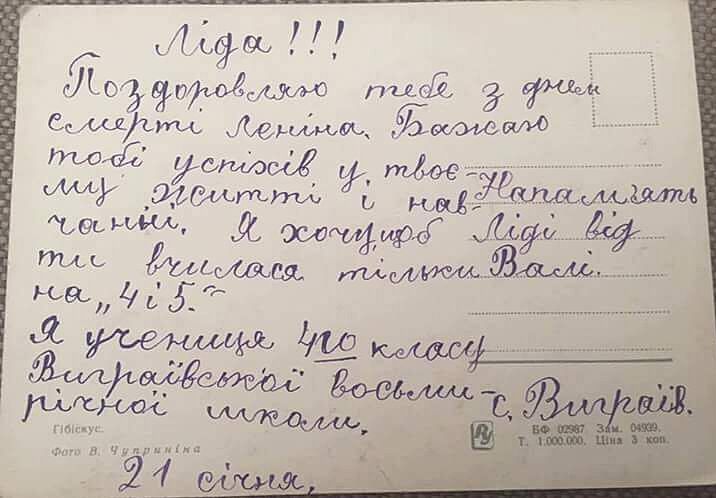 Ліда!!!
Поздоровляю тебе з днем
смерті Леніна. Бажаю
тобі успіхів у твоє-
му житті і нав-
чанні. Я хочу, щоб
ти вчилася тільки
на „4 і 5."
Я учениця 4го класу
Виграївської восьми-
річної школи.
21 січня.
Напам'ять
Ліді від
Валі.
с. Виграїв.
Гібіскус.
Фото В. Чуприніна
БФ 02987. Зам. 04939.
Т. 1.000.000. Ціна 3 коп.